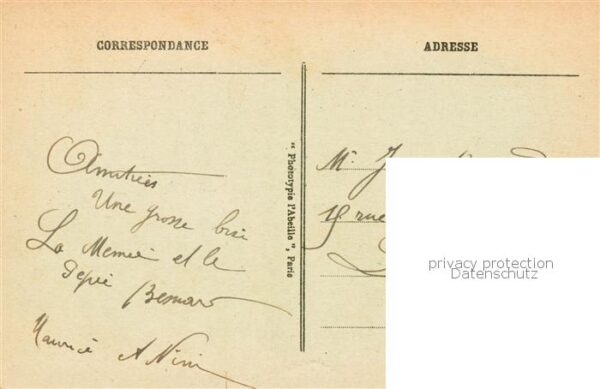 CORRESPONDANCE
ADRESSE
Amitiés
Une grosse bise
La Memée et le
Maurice et Nini
" Phototypie l'Abeille ", Paris
Mr
15 rue
privacy protection
Datenschutz